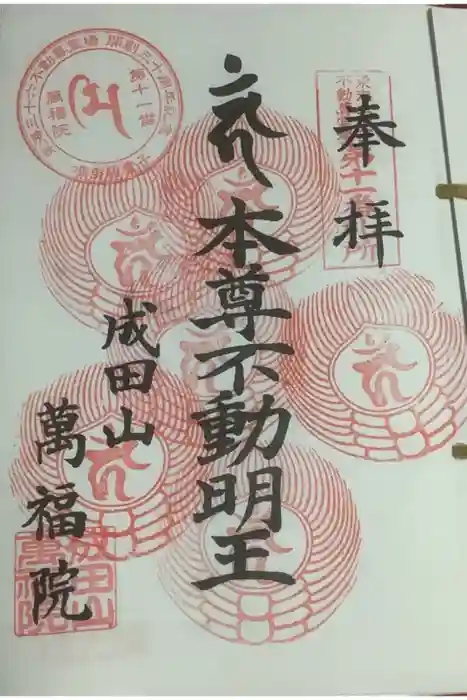 奉拝
本尊不動明王
成田山
萬福院
第十一番
萬福院
成田山
萬福院